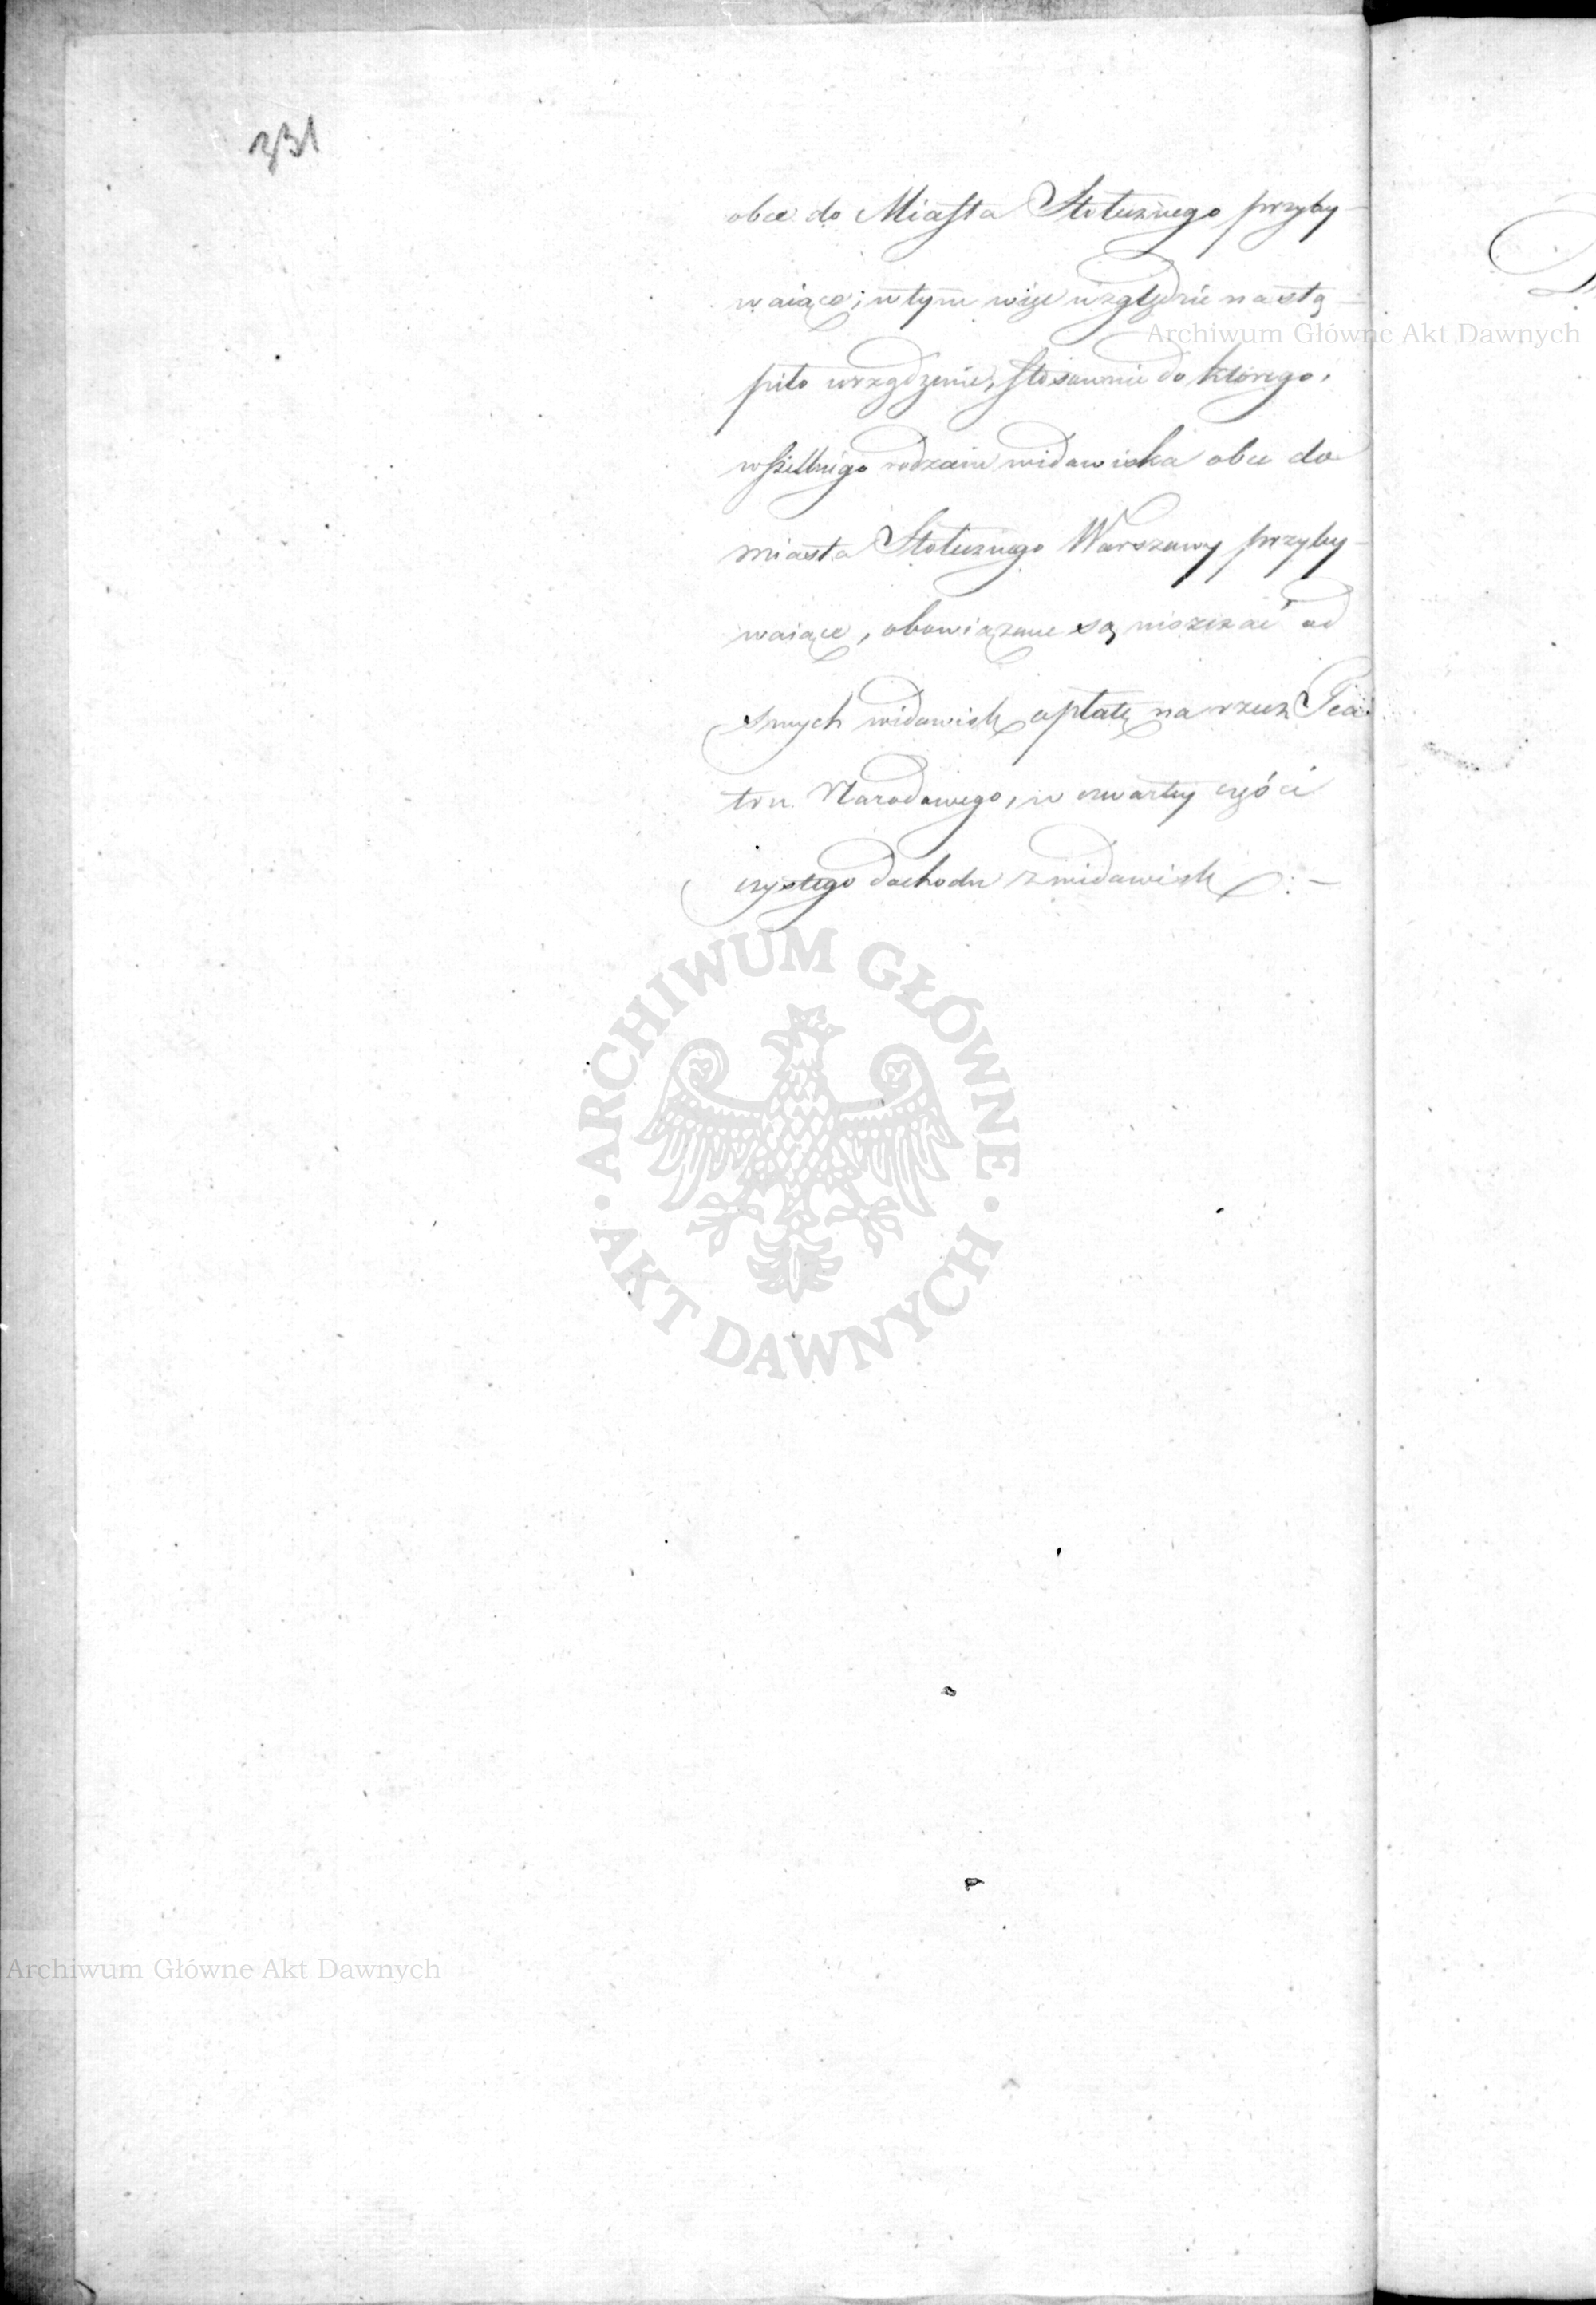 231
obce do Miasta Stołecznego przyby-
waiące; w tym więc względzie nastą-
piło urządzenie, stosownie do którego,
wszelkiego rodzaiu widowiska obce do
miasta Stołecznego Warszawy przyby-
waiące, obowiązane są uiszczać od
swych widowisk opłatę na rzecz Tea-
tru Narodowego, w czwartey części
czystego dochodu z widowisk :-
D
Archiwum Główne Akt Dawnych
ARCHIWUM GŁÓWNE
AKT DAWNYCH
Archiwum Główne Akt Dawnych